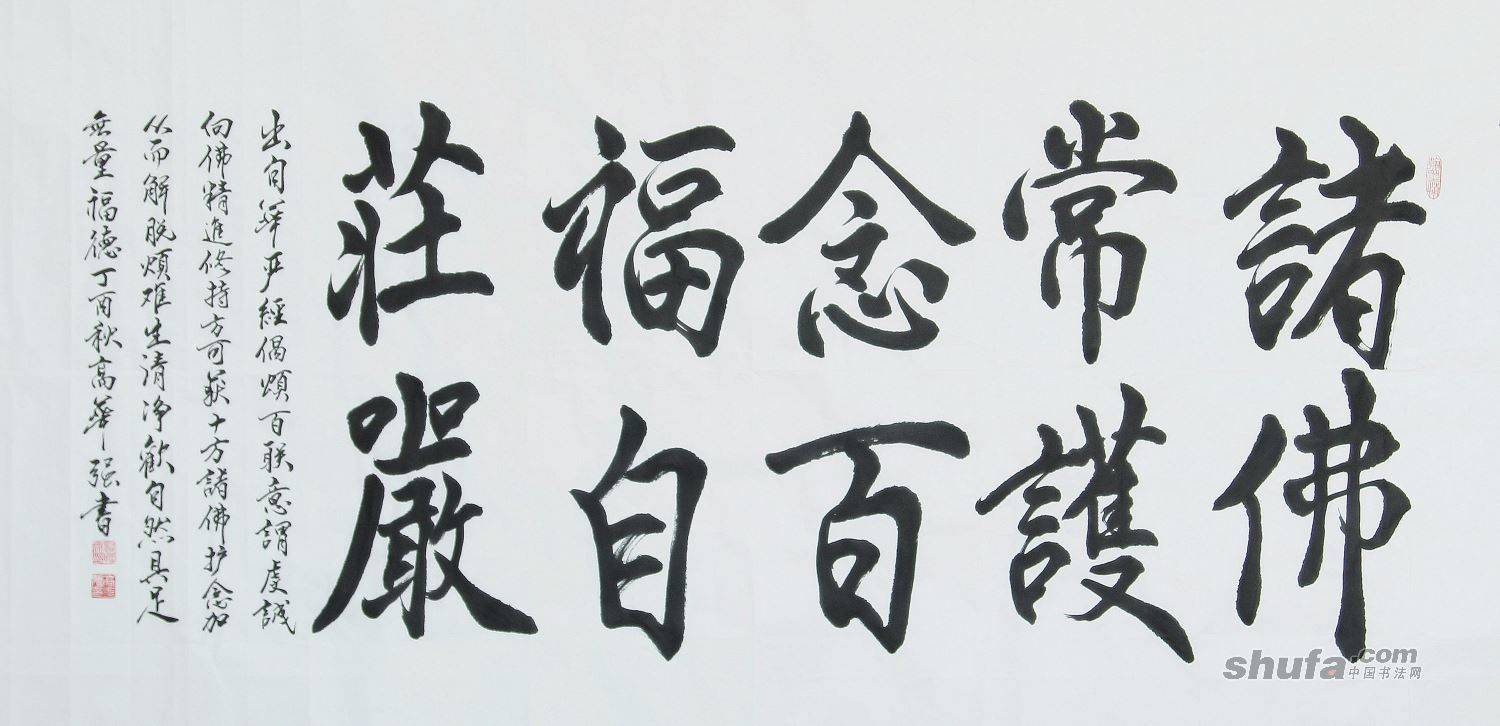 諸佛
常護
念百
福自
莊嚴
出自华严經偈頌百联意謂虔誠
向佛精進修持方可获十方諸佛护念加
从而解脱烦难生清净歡自然具足
無量福德丁酉秋高华强書
shufa.com
中国书法网